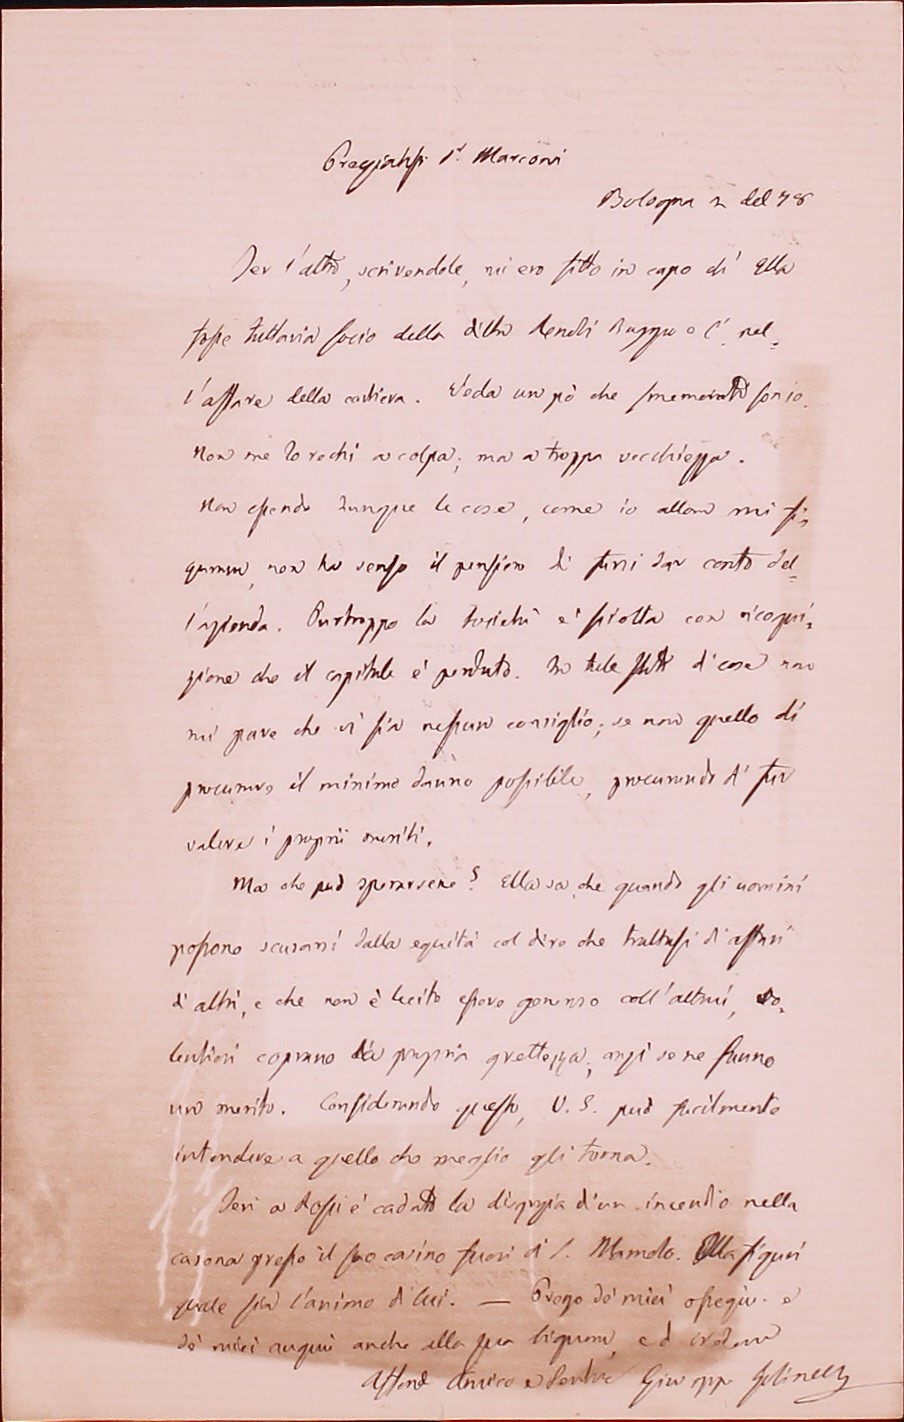 Pregiatissi Sr. Marconi
Bologna 2 del 78
Jer l'altro, scrivendole, mi ero fitto in capo di Ella
fosse tuttavia socio della ditta Renoli e C. nel-
l'affare della cartiera. Veda un pò che smemorato son io.
Non me lo rechi a colpa; ma a troppa vecchiezza.
Non essendo dunque le cose, come io allora mi fi-
gurava, non ha senso il pensiero di farsi dar conto del-
l'azienda. Purtroppo la Società è sciolta con ricogni-
zione che il capitale è perduto. In tale stato di cose non
mi pare che vi sia nessun consiglio; se non quello di
procurare il minimo danno possibile, procurando di far
valere i proprii meriti.
Ma che può sperarsene? Ella sa che quando gli uomini
possono scusarsi dalla equità col dire che trattasi di affari
di altri, e che non è lecito essere generoso coll'altrui, vo-
lentieri coprono la propria grettezza; anzi se ne fanno
un merito. Considerando questo, V. S. può facilmente
intendere a quello che meglio gli torna.
Ieri a Rossi è caduta la disgrazia d'un incendio nella
casona presso il suo casino fuori di S. Mamolo. Ella figuri
quale sia l'animo di lui. — Prego de' miei ossequi e
de' miei auguri anche alla sua Signora, ed
Affmo Amico e Servitore Giuseppe